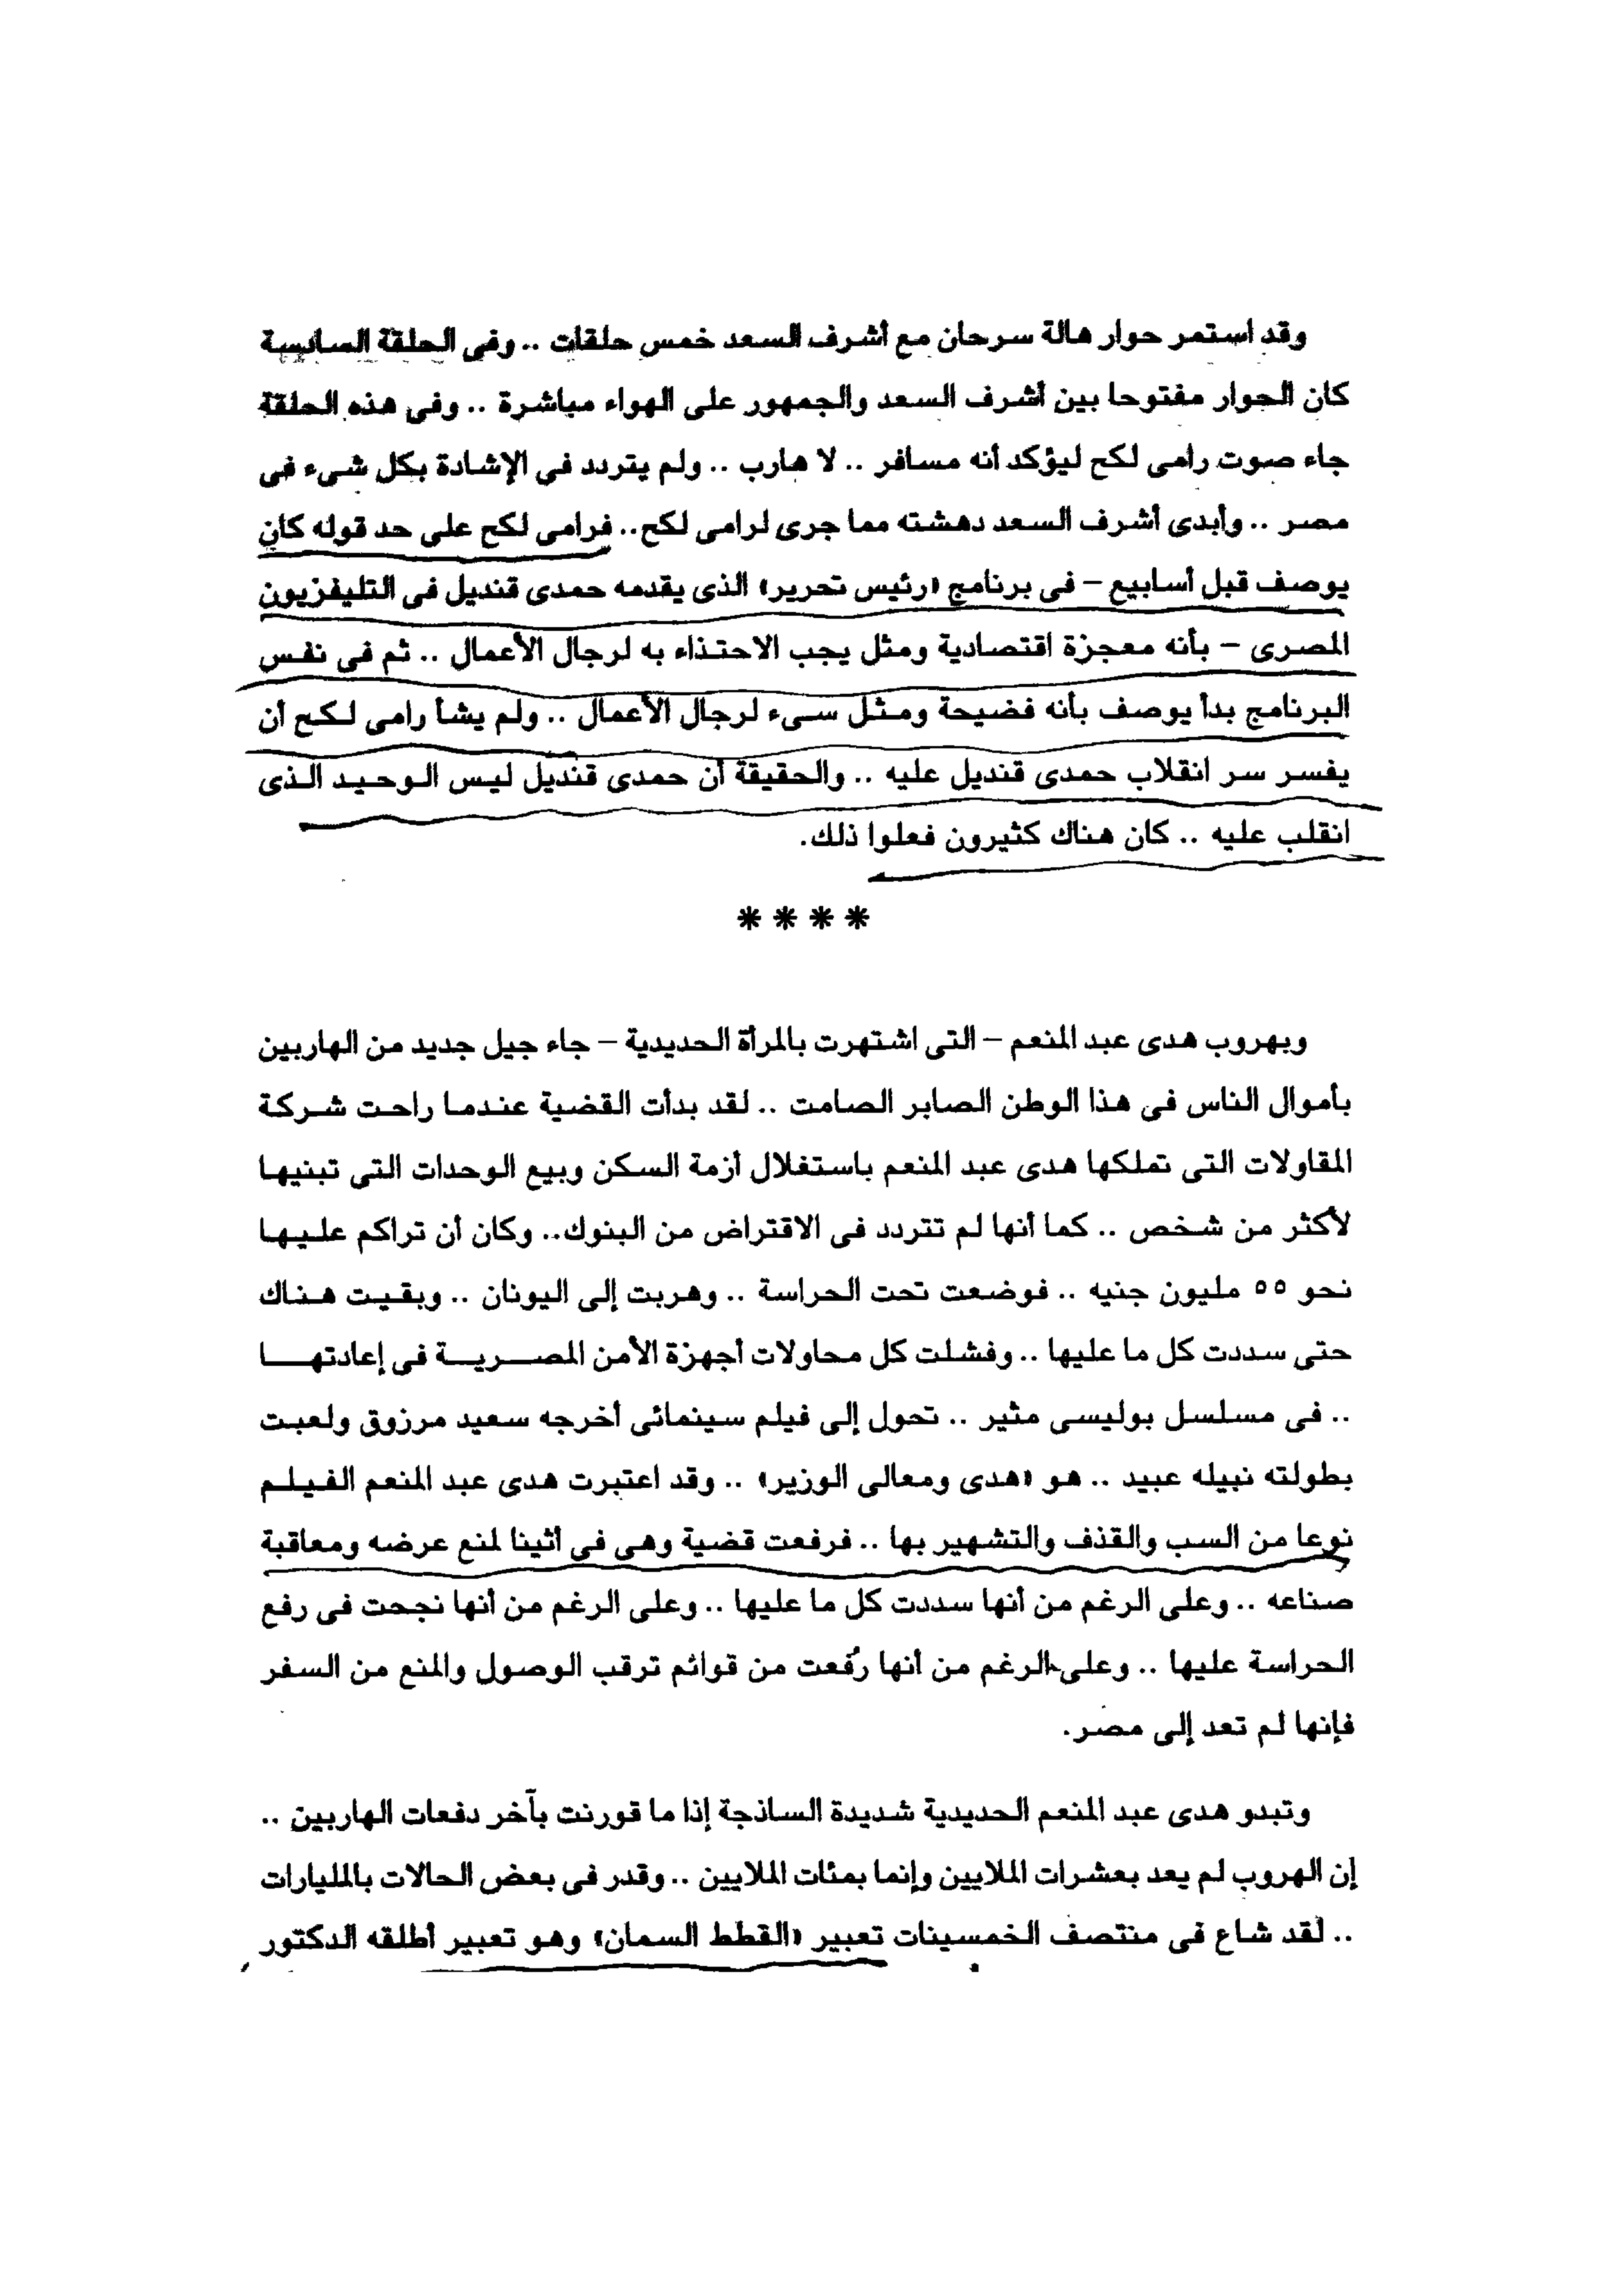 وقد استمر حوار هالة سرحان مع أشرف السعد خمس حلقات .. وفى الحلقة السادسة
كان الحوار مفتوحا بين أشرف السعد والجمهور على الهواء مباشرة .. وفى هذه الحلقة
جاء صوت رامى لكح ليؤكد أنه مسافر .. لا هارب .. ولم يتردد فى الإشادة بكل شىء فى
مصر .. وأبدى أشرف السعد دهشته مما جرى لرامى لكح.. فرامى لكح على حد قوله كان
يوصف قبل أسابيع – فى برنامج «رئيس تحرير» الذى يقدمه حمدى قنديل فى التليفزيون
المصرى – بأنه معجزة اقتصادية ومثل يجب الاحتذاء به لرجال الأعمال .. ثم فى نفس
البرنامج بدأ يوصف بأنه فضيحة ومثل سىء لرجال الأعمال .. ولم يشأ رامى لكح أن
يفسر سر انقلاب حمدى قنديل عليه .. والحقيقة أن حمدى قنديل ليس الوحيد الذى
انقلب عليه .. كان هناك كثيرون فعلوا ذلك.
* * * *
وبهروب هدى عبد المنعم – التى اشتهرت بالمرأة الحديدية – جاء جيل جديد من الهاربين
بأموال الناس فى هذا الوطن الصابر الصامت .. لقد بدأت القضية عندما راحت شركة
المقاولات التى تملكها هدى عبد المنعم باستغلال أزمة السكن وبيع الوحدات التى تبنيها
لأكثر من شخص .. كما أنها لم تتردد فى الاقتراض من البنوك.. وكان أن تراكم عليها
نحو ٥٥ مليون جنيه .. فوضعت تحت الحراسة .. وهربت إلى اليونان .. وبقيت هناك
حتى سددت كل ما عليها .. وفشلت كل محاولات أجهزة الأمن المصرية فى إعادتها
.. فى مسلسل بوليسى مثير .. تحول إلى فيلم سينمائى أخرجه سعيد مرزوق ولعبت
بطولته نبيله عبيد .. هو «هدى ومعالى الوزير» .. وقد اعتبرت هدى عبد المنعم الفيلم
نوعا من السب والقذف والتشهير بها .. فرفعت قضية وهى فى أثينا لمنع عرضه ومعاقبة
صناعه .. وعلى الرغم من أنها سددت كل ما عليها .. وعلى الرغم من أنها نجحت فى رفع
الحراسة عليها .. وعلى الرغم من أنها رُفعت من قوائم ترقب الوصول والمنع من السفر
فإنها لم تعد إلى مصر.
وتبدو هدى عبد المنعم الحديدية شديدة الساذجة إذا ما قورنت بآخر دفعات الهاربين ..
إن الهروب لم يعد بعشرات الملايين وإنما بمئات الملايين .. وقدر فى بعض الحالات بالمليارات
.. لقد شاع فى منتصف الخمسينات تعبير «القطط السمان» وهو تعبير أطلقه الدكتور